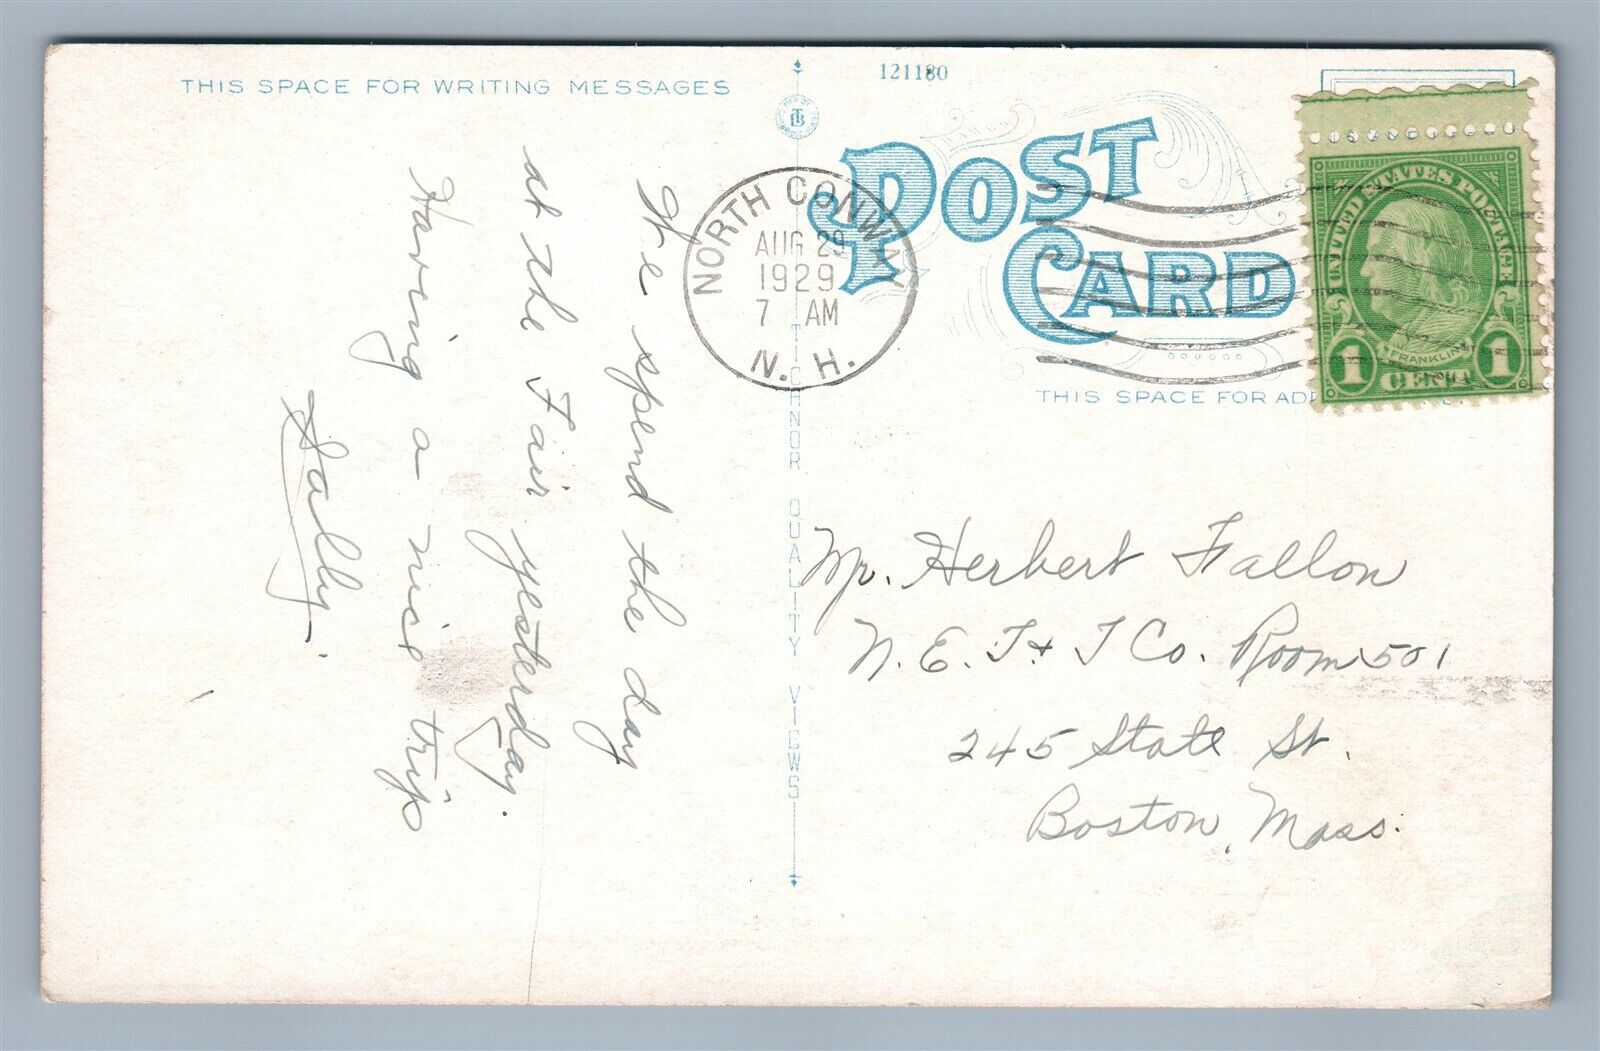 THIS SPACE FOR WRITING MESSAGES
121180
POST
CARD
NORTH CONWAY
AUG 29
1929
7 AM
N. H.
UNITED STATES POSTAGE
FRANKLIN
1 CENT 1
THIS SPACE FOR AD
TICHNOR QUALITY VIEWS
We spend the day
at the Fair yesterday.
Having a nice trip
Sally.
Mr. Herbert Fallon
N. E. T + T Co. Room 501
245 State St.
Boston, Mass.